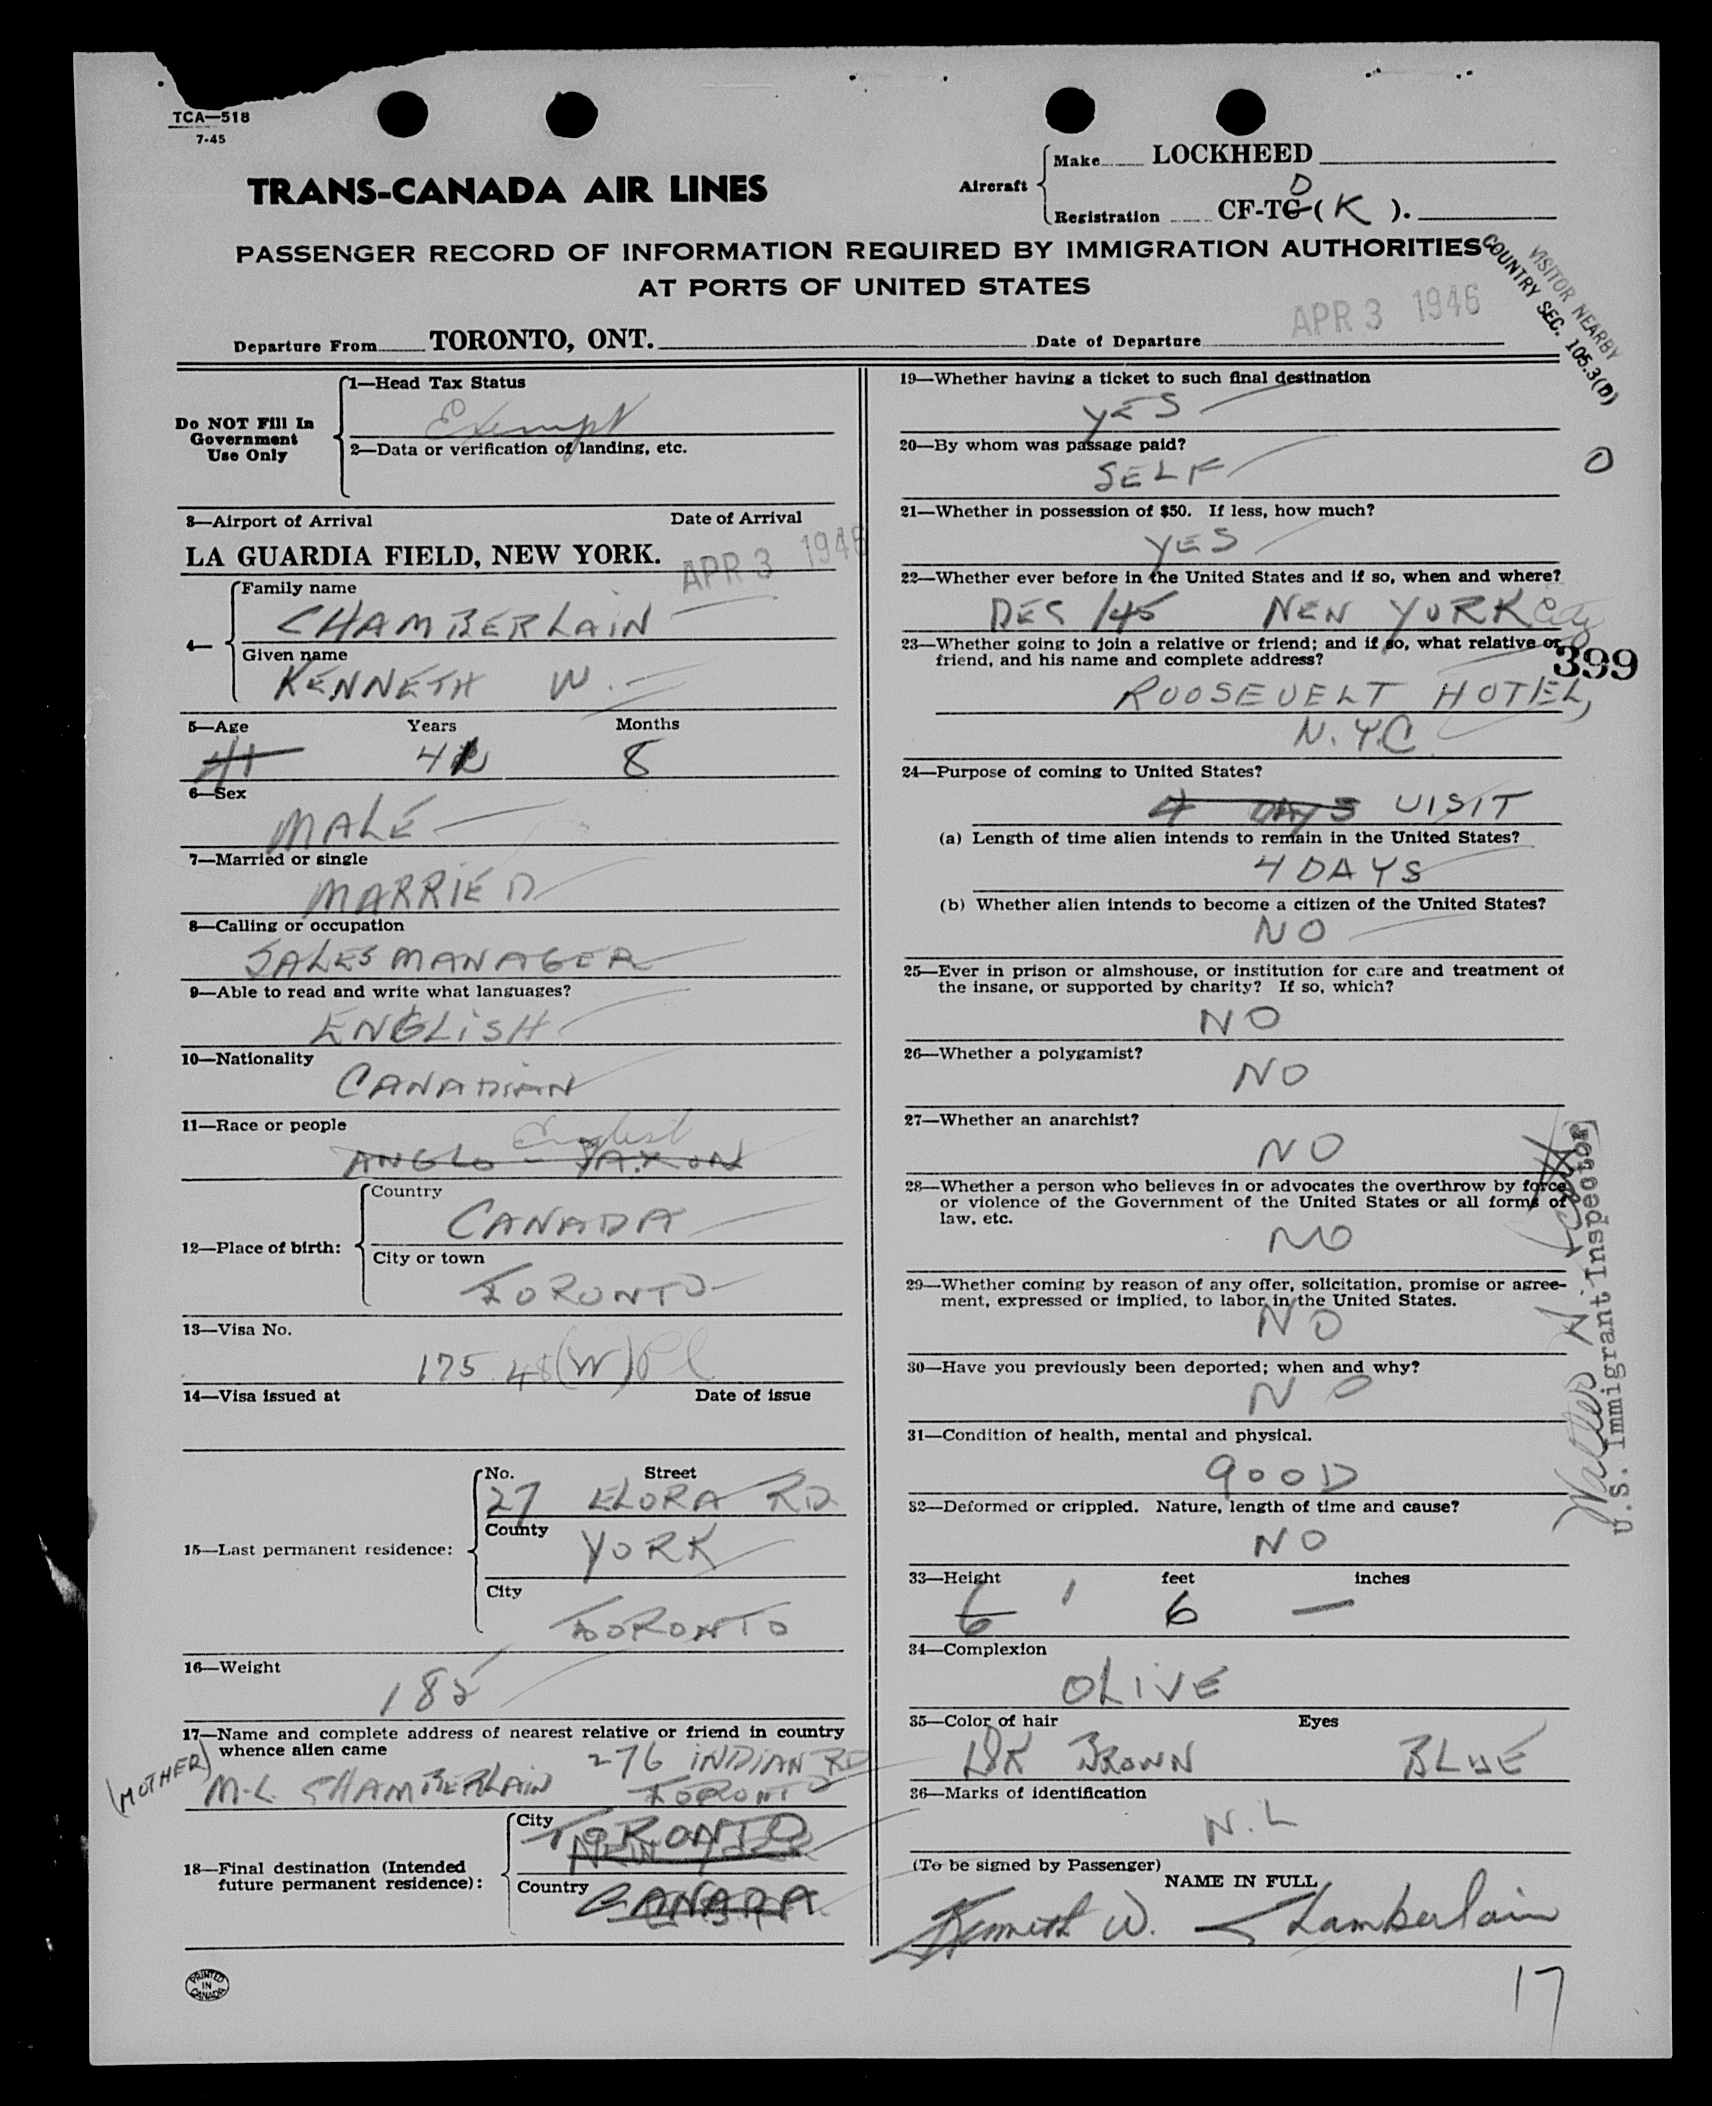 TCA—518
7-45
TRANS-CANADA AIR LINES
Aircraft
Make LOCKHEED
Registration CF-TG D (K).
PASSENGER RECORD OF INFORMATION REQUIRED BY IMMIGRATION AUTHORITIES
AT PORTS OF UNITED STATES
VISITOR NEARBY
COUNTRY SEC. 105.3(D)
Departure From TORONTO, ONT. Date of Departure APR 3 1946
Do NOT Fill In
Government
Use Only
1—Head Tax Status
Exempt
2—Data or verification of landing, etc.
3—Airport of Arrival Date of Arrival
LA GUARDIA FIELD, NEW YORK. APR 3 1946
4—
Family name
CHAMBERLAIN
Given name
KENNETH W.
5—Age Years Months
41 42 8
6—Sex
MALE
7—Married or single
MARRIED
8—Calling or occupation
SALES MANAGER
9—Able to read and write what languages?
ENGLISH
10—Nationality
CANADIAN
11—Race or people
English
ANGLO-SAXON
12—Place of birth:
Country
CANADA
City or town
TORONTO
13—Visa No.
175.48(W)
14—Visa issued at Date of issue
15—Last permanent residence:
No. Street
27 ELORA RD
County
YORK
City
TORONTO
16—Weight
185
17—Name and complete address of nearest relative or friend in country
whence alien came
(MOTHER) M.L. CHAMBERLAIN 276 INDIAN RD
TORONTO
18—Final destination (Intended
future permanent residence):
City
TORONTO
NEW YORK
Country
CANADA
PRINTED
IN
CANADA
19—Whether having a ticket to such final destination
YES
20—By whom was passage paid?
SELF
O
21—Whether in possession of $50. If less, how much?
YES
22—Whether ever before in the United States and if so, when and where?
DEC /45 NEW YORK City
23—Whether going to join a relative or friend; and if so, what relative or
friend, and his name and complete address?
399
ROOSEVELT HOTEL,
N.Y.C.
24—Purpose of coming to United States?
4 DAYS VISIT
(a) Length of time alien intends to remain in the United States?
4 DAYS
(b) Whether alien intends to become a citizen of the United States?
NO
25—Ever in prison or almshouse, or institution for care and treatment of
the insane, or supported by charity? If so, which?
NO
26—Whether a polygamist?
NO
27—Whether an anarchist?
NO
28—Whether a person who believes in or advocates the overthrow by force
or violence of the Government of the United States or all forms of
law, etc.
NO
29—Whether coming by reason of any offer, solicitation, promise or agree-
ment, expressed or implied, to labor in the United States.
NO
30—Have you previously been deported; when and why?
NO
31—Condition of health, mental and physical.
GOOD
32—Deformed or crippled. Nature, length of time and cause?
NO
33—Height feet inches
6 ' 6 —
34—Complexion
OLIVE
35—Color of hair Eyes
DK BROWN BLUE
36—Marks of identification
N.L
(To be signed by Passenger)
NAME IN FULL
Kenneth W. Chamberlain
17
Walter
U.S. Immigrant Inspector